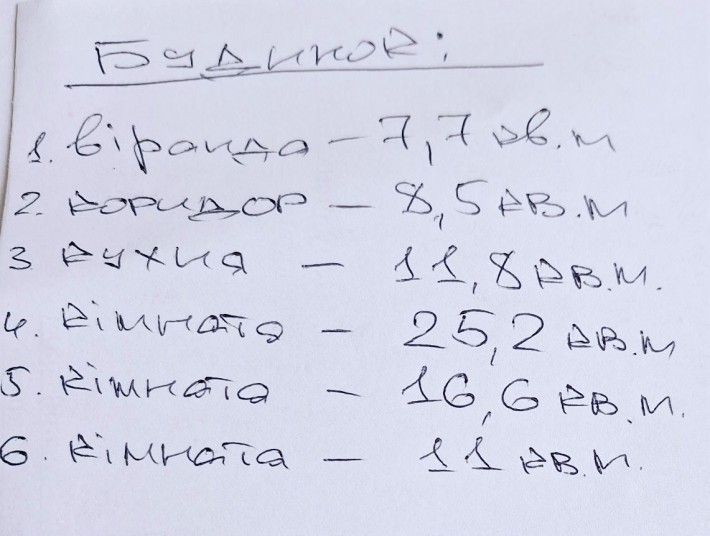 Будинок:
1. віранда – 7,7 кв.м
2. коридор – 8,5 кв.м
3. кухня – 11,8 кв.м.
4. кімната – 25,2 кв.м
5. кімната – 16,6 кв.м.
6. кімната – 11 кв.м.